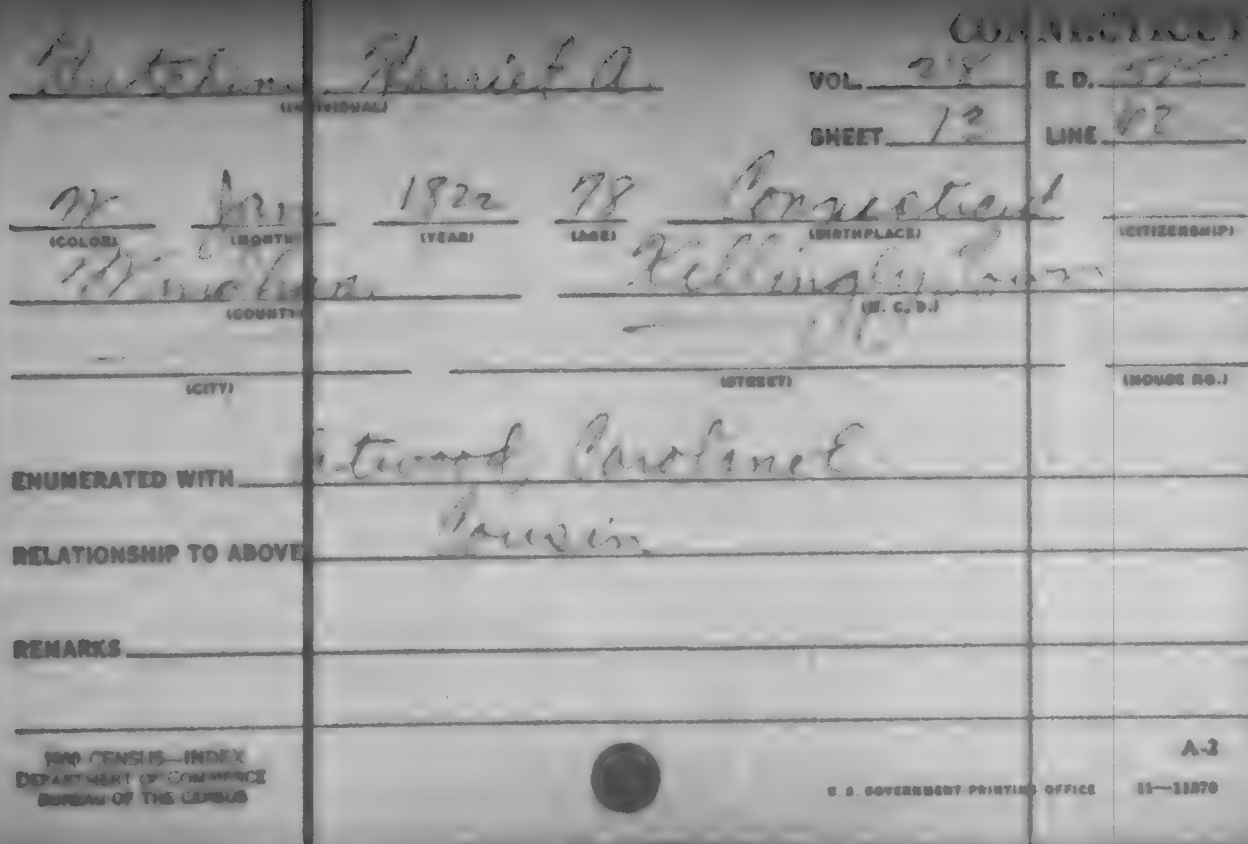 CONNECTICUT
Harriet A.
(INDIVIDUAL)
VOL. 28 E. D.
SHEET 13 LINE
W Jan 1822 78 Connecticut
(COLOR) (MONTH) (YEAR) (AGE) (BIRTHPLACE) (CITIZENSHIP)
Windham Killingly Town
(COUNTY) (M. C. D.)
(CITY) (STREET) (HOUSE NO.)
ENUMERATED WITH Atwood, Caroline E
RELATIONSHIP TO ABOVE Cousin
REMARKS
1900 CENSUS—INDEX
DEPARTMENT OF COMMERCE
BUREAU OF THE CENSUS
U. S. GOVERNMENT PRINTING OFFICE 11—11870
A-2